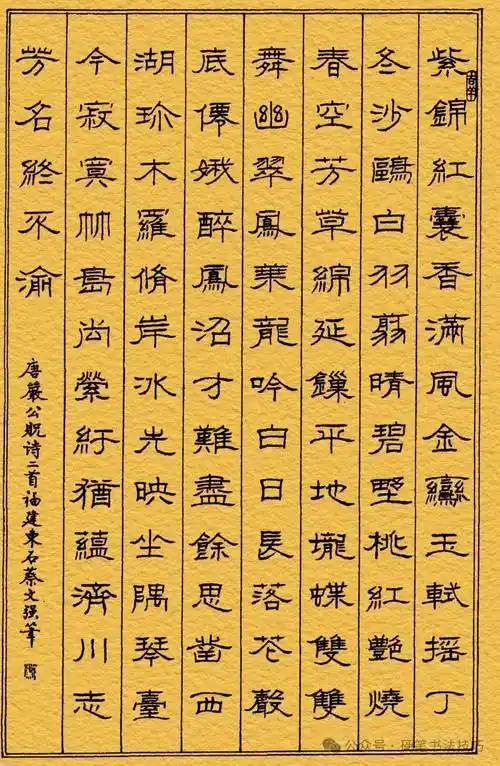 紫錦紅囊香滿風金鸞玉軾搖丁
冬沙鷗白羽翦晴碧野桃紅艷燒
春空芳草綿延鏁平地壠蝶雙雙
舞幽翠鳳葉龍吟白日長落花聲
底僊娥醉鳳沼才難盡餘思凿西
湖珎木羅脩岸冰光映坐隅琴臺
今寂寞竹島尚縈紆猶蘊濟川志
芳名終不渝
唐嚴公貺诗二首福建東石蔡文强筆
公众号·硬笔书法技巧